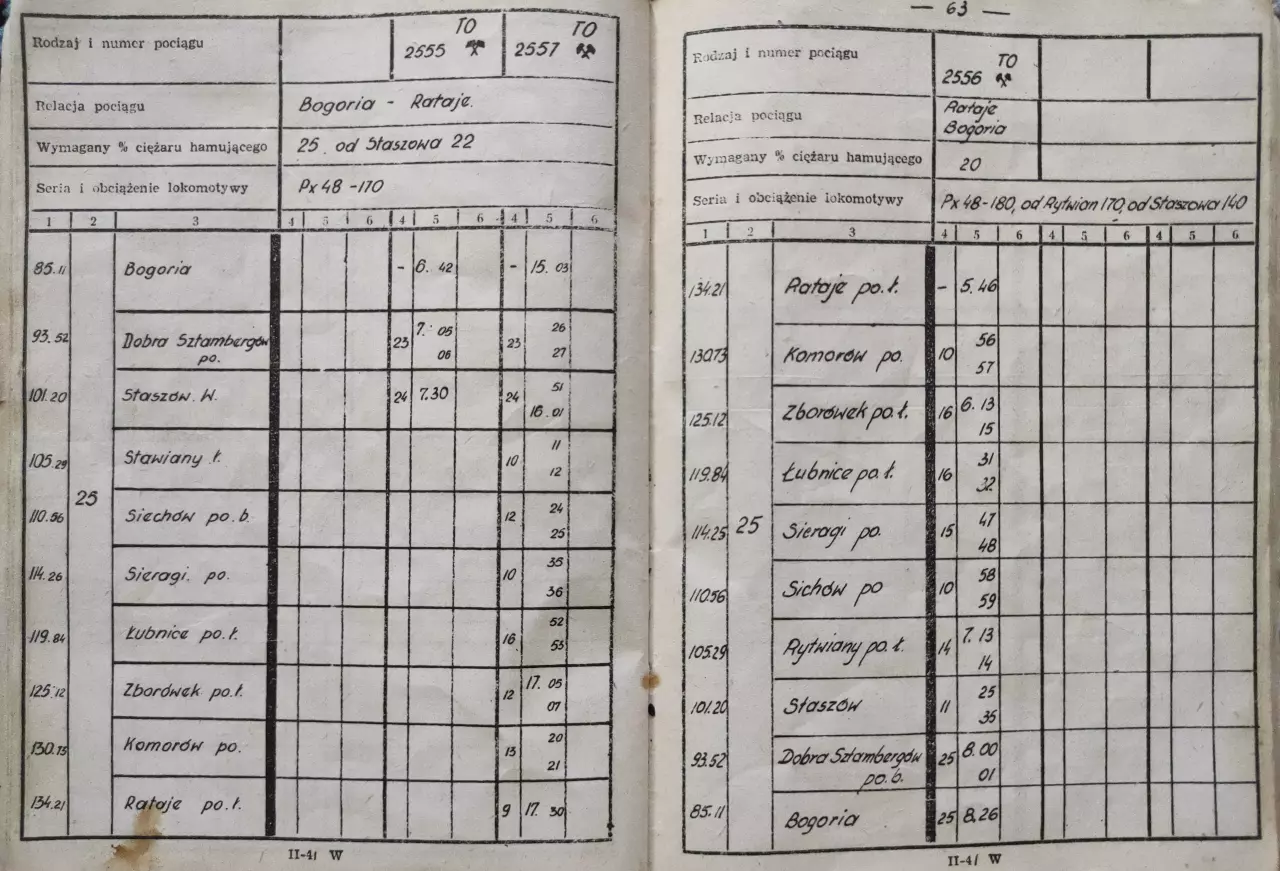 Rodzaj i numer pociągu
TO TO
2555 ⚒ 2557 ⚒
Relacja pociągu Bogoria - Rataje.
Wymagany % ciężaru hamującego 25. od Staszowa 22
Seria i obciążenie lokomotywy Px48-170
1 2 3 4 5 6 4 5 6 4 5 6
85.11 Bogoria - 6. 42 - 15. 03
93.52 Dobra Sztambergów 23 7. 05 23 26
po. 06 27
101.20 Staszów. W. 24 7.30 24 51
16.01
105.29 Stawiany ł. 10 11
12
25
110.56 Siechów po.b. 12 24
25
114.26 Sieragi. po. 10 35
36
119.84 Łubnice po.ł. 16 52
53
125.12 Zborówek po.ł. 12 17. 05
07
130.73 Komorów po. 13 20
21
134.21 Rataje po.ł. 9 17. 30
II-41 W
— 63 —
Rodzaj i numer pociągu TO
2556 ⚒
Relacja pociągu Rataje
Bogoria
Wymagany % ciężaru hamującego 20
Seria i obciążenie lokomotywy Px48-180, od Rytwian 170, od Staszowa 140
1 2 3 4 5 6 4 5 6 4 5 6
134.21 Rataje po.ł. - 5.46
130.73 Komorów po. 10 56
57
125.12 Zborówek po.ł. 16 6. 13
15
119.84 Łubnice po.ł. 16 31
32
114.25 25 Sieragi po. 15 47
48
110.56 Sichów po 10 58
59
105.29 Rytwiany po.ł. 14 7. 13
14
101.20 Staszów 11 25
35
93.52 Dobra Sztambergów 25 8.00
po.b. 01
85.11 Bogoria 25 8.26
II-41 W